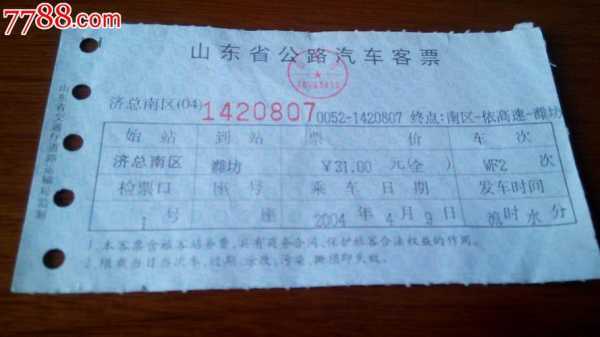 7788.com
山东省公路汽车客票
济总南区(04) 1420807 0052-1420807 终点:南区-依高速-潍坊
始站 到站 票价 车次
济总南区 潍坊 ￥31.00 元(全) WF2 次
检票口 座号 乘车日期 发车时间
号 座 2004 年 4 月 9 日 时 分
1.本客票含旅客站务费,具有商务合同,保护旅客合法权益的作用。
2.限乘当日当次车,过期、涂改、污染、撕损即失效。